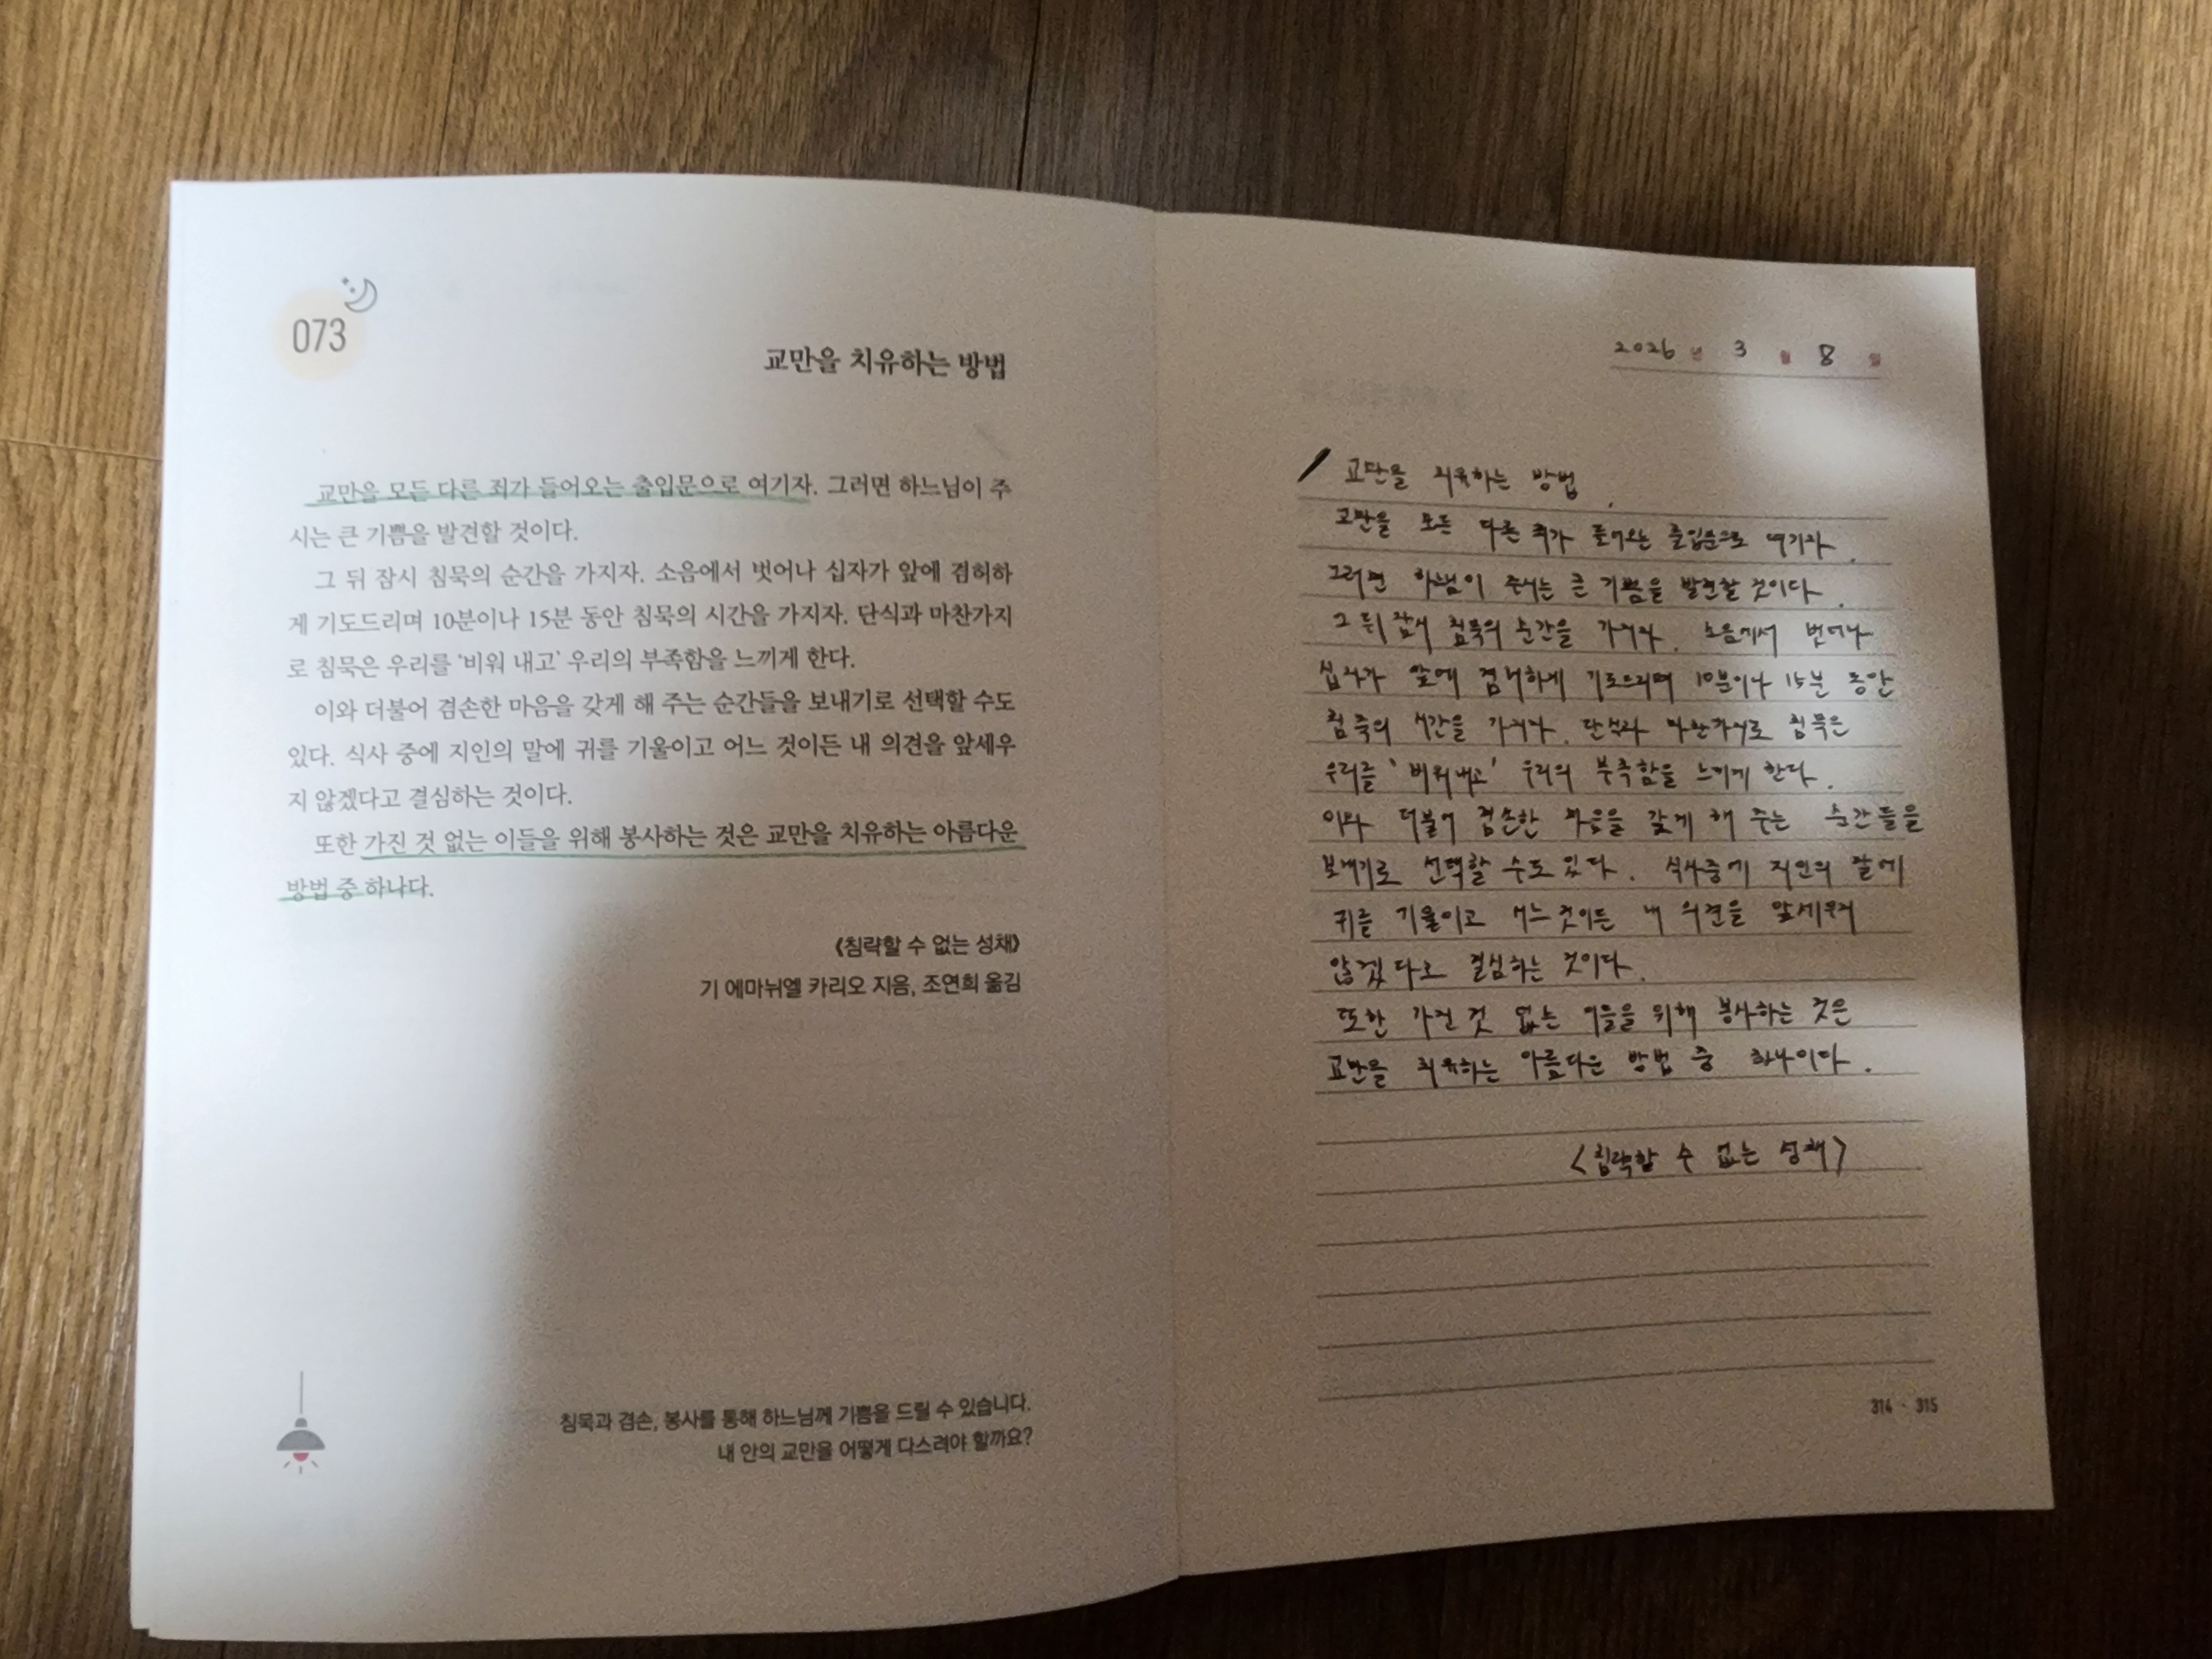 073
교만을 치유하는 방법
교만을 모든 다른 죄가 들어오는 출입문으로 여기자. 그러면 하느님이 주
시는 큰 기쁨을 발견할 것이다.
그 뒤 잠시 침묵의 순간을 가지자. 소음에서 벗어나 십자가 앞에 겸허하
게 기도드리며 10분이나 15분 동안 침묵의 시간을 가지자. 단식과 마찬가지
로 침묵은 우리를 '비워 내고' 우리의 부족함을 느끼게 한다.
이와 더불어 겸손한 마음을 갖게 해 주는 순간들을 보내기로 선택할 수도
있다. 식사 중에 지인의 말에 귀를 기울이고 어느 것이든 내 의견을 앞세우
지 않겠다고 결심하는 것이다.
또한 가진 것 없는 이들을 위해 봉사하는 것은 교만을 치유하는 아름다운
방법 중 하나다.
《침략할 수 없는 성채》
기 에마뉘엘 카리오 지음, 조연희 옮김
침묵과 겸손, 봉사를 통해 하느님께 기쁨을 드릴 수 있습니다.
내 안의 교만을 어떻게 다스려야 할까요?
2026년 3월 8일
교만을 치유하는 방법
교만을 모든 다른 죄가 들어오는 출입문으로 여기자.
그러면 하느님이 주시는 큰 기쁨을 발견할 것이다.
그 뒤 잠시 침묵의 순간을 가지자. 소음에서 벗어나
십자가 앞에 겸허하게 기도드리며 10분이나 15분 동안
침묵의 시간을 가지자. 단식과 마찬가지로 침묵은
우리를 '비워내고' 우리의 부족함을 느끼게 한다.
이와 더불어 겸손한 마음을 갖게 해 주는 순간들을
보내기로 선택할 수도 있다. 식사중에 지인의 말에
귀를 기울이고 어느 것이든 내 의견을 앞세우지
않겠다고 결심하는 것이다.
또한 가진 것 없는 이들을 위해 봉사하는 것은
교만을 치유하는 아름다운 방법 중 하나이다.
<침략할 수 없는 성채>
314 · 315